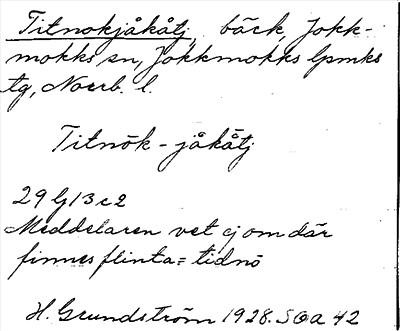 Titnokjåkåtj, bäck, Jokk-
mokks sn, Jokkmokks lpmks
tg, Norrb. l.
Titnōk - jåkåtj
29 G/3 c 2
Meddelaren vet ej om där
finnes flinta = tidnō
H. Grundström 1928. SOA 42